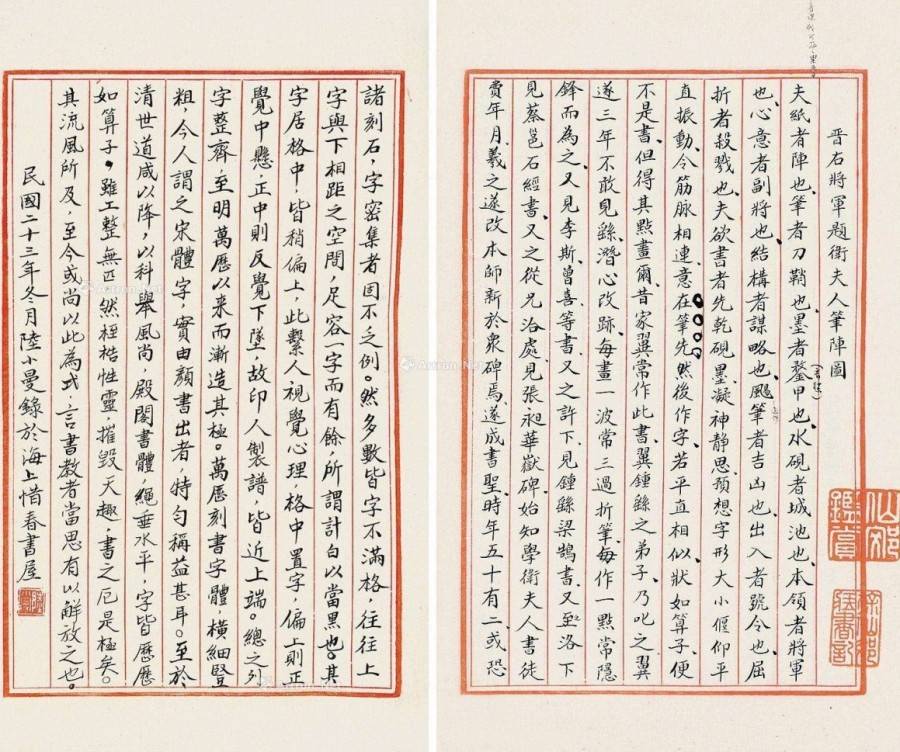 晋石將軍題衛夫人筆陣圖
夫紙者陣也、筆者刀鞘也、墨者鍪甲也、水硯者城池也、本領者將軍
也、心意者副將也、結構者謀略也、颺筆者吉凶也、出入者號令也、屈
折者殺戮也、夫欲書者先乾硯墨、凝神静思、預想字形大小偃仰平
直振動、令筋脈相連、意在筆先、然後作字、若平直相似、狀如算子、便
不是書、但得其點畫爾、昔宋翼常作此書、翼鍾繇之弟子、乃叱之翼
遂三年不敢見繇、潛心改跡、每畫一波常三過折筆、每作一點常隱
鋒而為之、又見李斯、曾喜等書、又之許下、見鍾繇梁鵠書、又至洛下
見蔡邕石經書、又之從兄洽處、見張昶華嶽碑、始知學衛夫人書徒
費年月、羲之遂改本師新於衆碑焉、遂成書聖、時年五十有二、或恐
諸刻石，字密集者固不乏例。然多數皆字不滿格，往往上
字與下相距之空間，足容一字而有餘，所謂計白以當黑也。其
字居格中，皆稍偏上，此繫人視覺心理，格中置字，偏上則正
覺中懸，正中則反覺下墜，故印人製譜，皆近上端。總之列
字整齊，至明萬歷以来而漸造其極。萬歷刻書字體，橫細豎
粗，今人謂之宋體字，實由顏書出者，特勻稱益甚耳。至於
清世道咸以降，以科舉風尚，殿閣書體，繩垂水平，字皆歷歷
如算子。雖工整無匹，然桎梏性靈，摧毀天趣，書之厄是極矣。
其流風所及，至今或尚以此為式，言書教者當思有以解放之也。
民國二十三年冬月陸小曼錄於海上惜春書屋